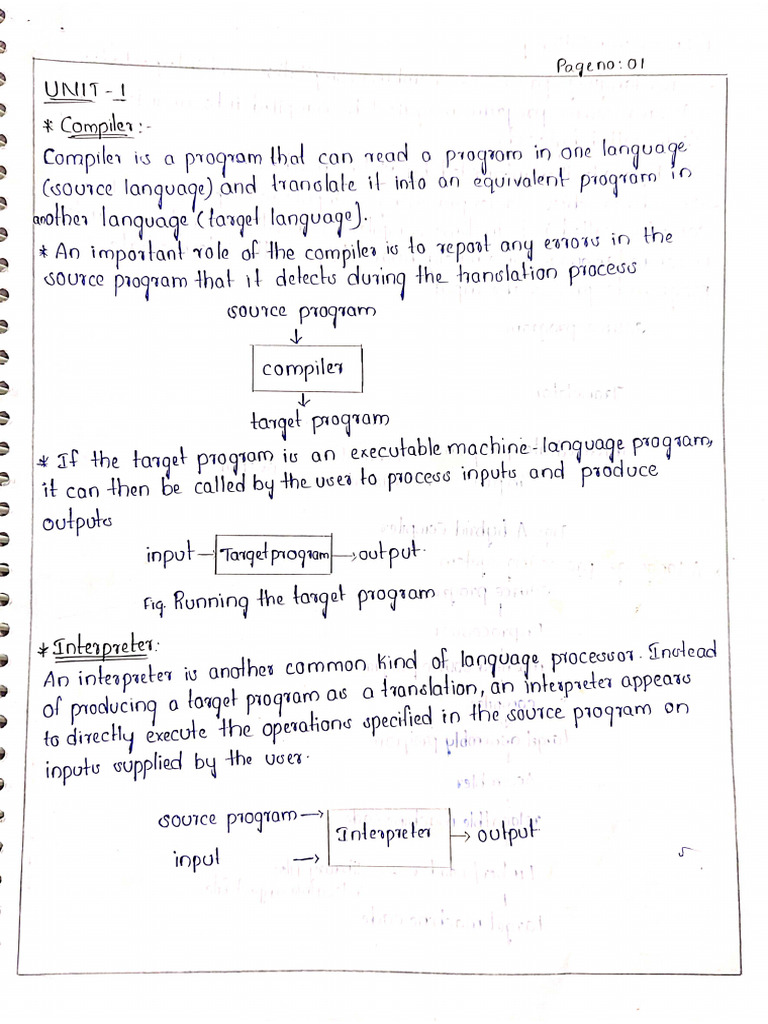 Page no: 01
UNIT - 1
* Compiler:-
Compiler is a program that can read a program in one language
(source language) and translate it into an equivalent program in
another language (target language).
* An important role of the compiler is to report any errors in the
source program that it detects during the translation process
source program
↓
compiler
↓
target program
* If the target program is an executable machine-language program,
it can then be called by the user to process inputs and produce
outputs
input — Target program → output.
Fig. Running the target program
* Interpreter:
An interpreter is another common kind of language processor. Instead
of producing a target program as a translation, an interpreter appears
to directly execute the operations specified in the source program on
inputs supplied by the user.
source program →
Interpreter → output
input →